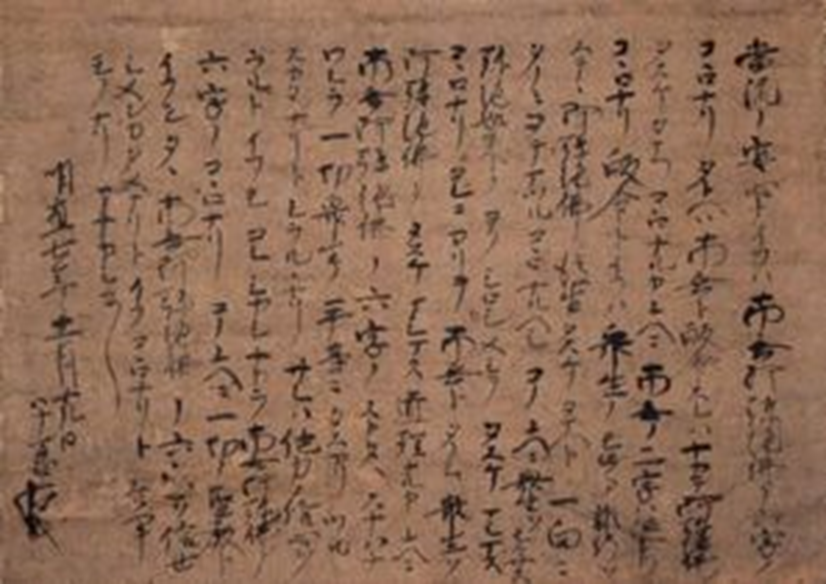 当流ノ安心トイフハ南無阿弥陀仏ノ六字ノ
コヽロナリタトヘハ南無ト帰命スレハヤカテ阿弥陀仏ノ
タスケタマヘルコヽロナルカユヘニ南無ノ二字ハ帰命ノ
コヽロナリ帰命トイフハ衆生ノ雑行ヲ
ステヽ阿弥陀仏後生タスケタマヘト一向ニ
タノミタテマツルコヽロナルヘシコノユヘニ衆生ヲモラサス
弥陀如来ノヨクシロシメシテタスケマシマス
コヽロナリコレニヨリテ南無トタノム衆生ヲ
阿弥陀仏ノタスケマシマス道理ナルカユヘニ
南無阿弥陀仏ノ六字ノスカタハスナハチ
ワレラ一切衆生ノ平等ニタスカリツル
スカタナリトシラルヽナリサレハ他力ノ信心ヲ
ウルトイフモコレシカシナカラ南無阿弥陀仏ノ
六字ノコヽロナリコノユヘニ一切ノ聖教ト
イフモタヽ南無阿弥陀仏ノ六字ヲ信セ
シメンカタメナリトイフコヽロナリト
モノナリアナカシコ
明応七年十一月十九日